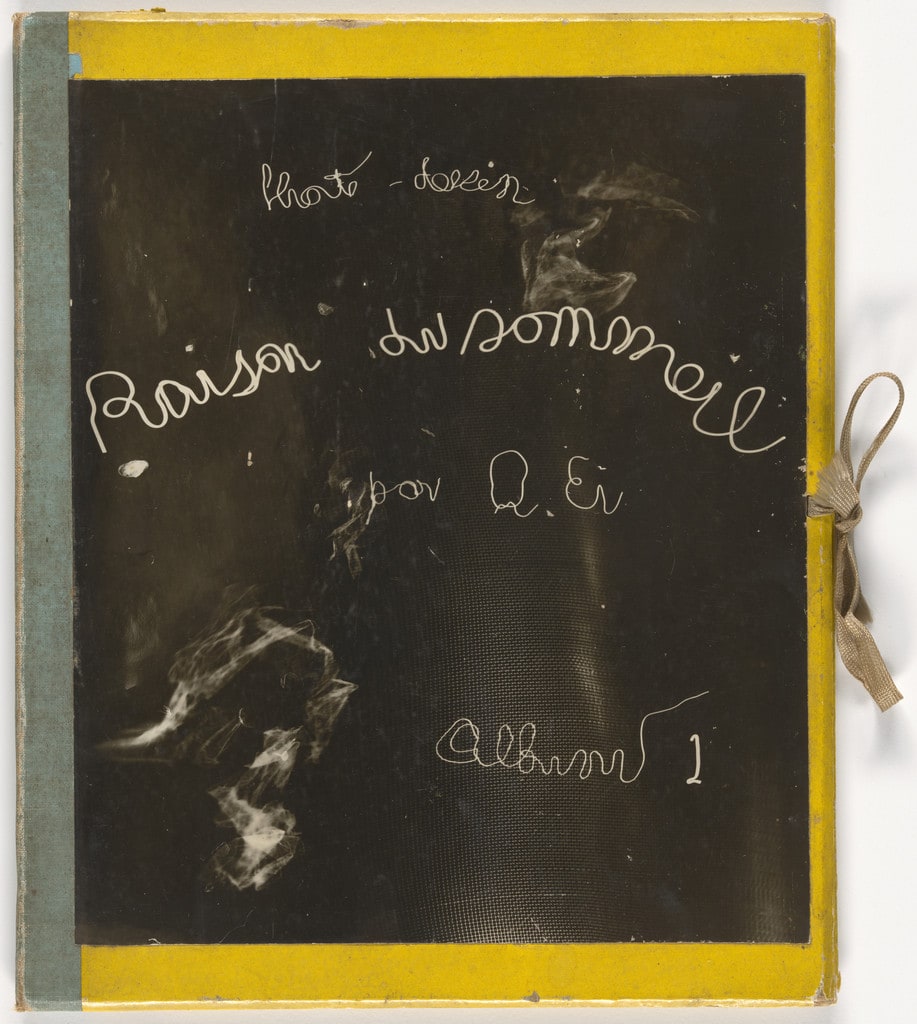 Photo - dessin
Raison du sommeil
par Q. Ei
Album 1